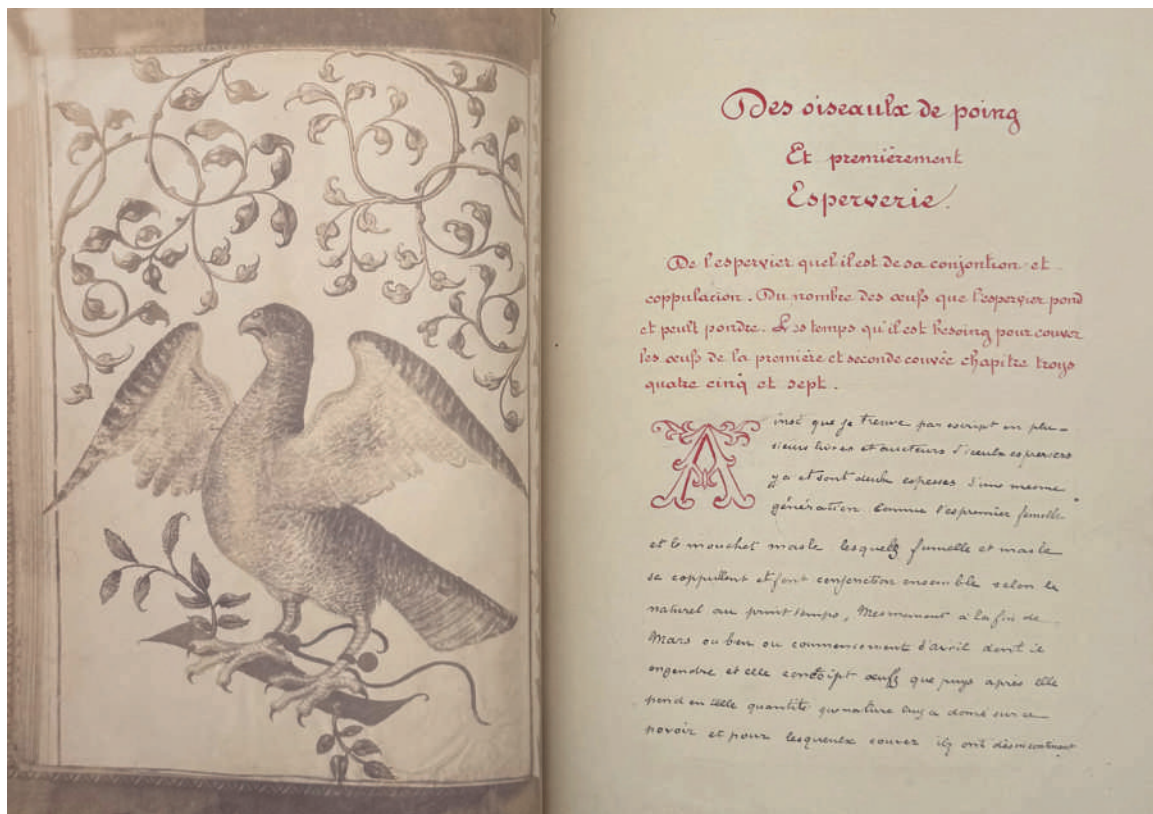 Des oiseaulx de poing
Et premièrement
Esperverie.
De l'espervier quel il est de sa conjontion et
coppulacion. Du nombre des œufs que l'espervier pond
et peult pondre. Les temps qu'il est besoing pour couver
les œufs de la première et seconde couvée chapitre troys
quatre cinq et sept.
Ainsi que je treuve par escript en plu-
sieurs livres et aucteurs d'iceulx esperviers
y a et sont deulx espesses d'une mesme
génération. Comme l'espremier femelle
et le mouchet masle lesquelz fumelle et masle
se coppullent et font conjonction ensemble selon le
naturel au printemps, Mesmement à la fin de
Mars ou ben ou commencement d'avril dont il
engendre et elle conceipt œufz que puys après elle
pond en telle quantité que nature luy a donné sur ce
povoir et pour lesqueulx couver ilz ont